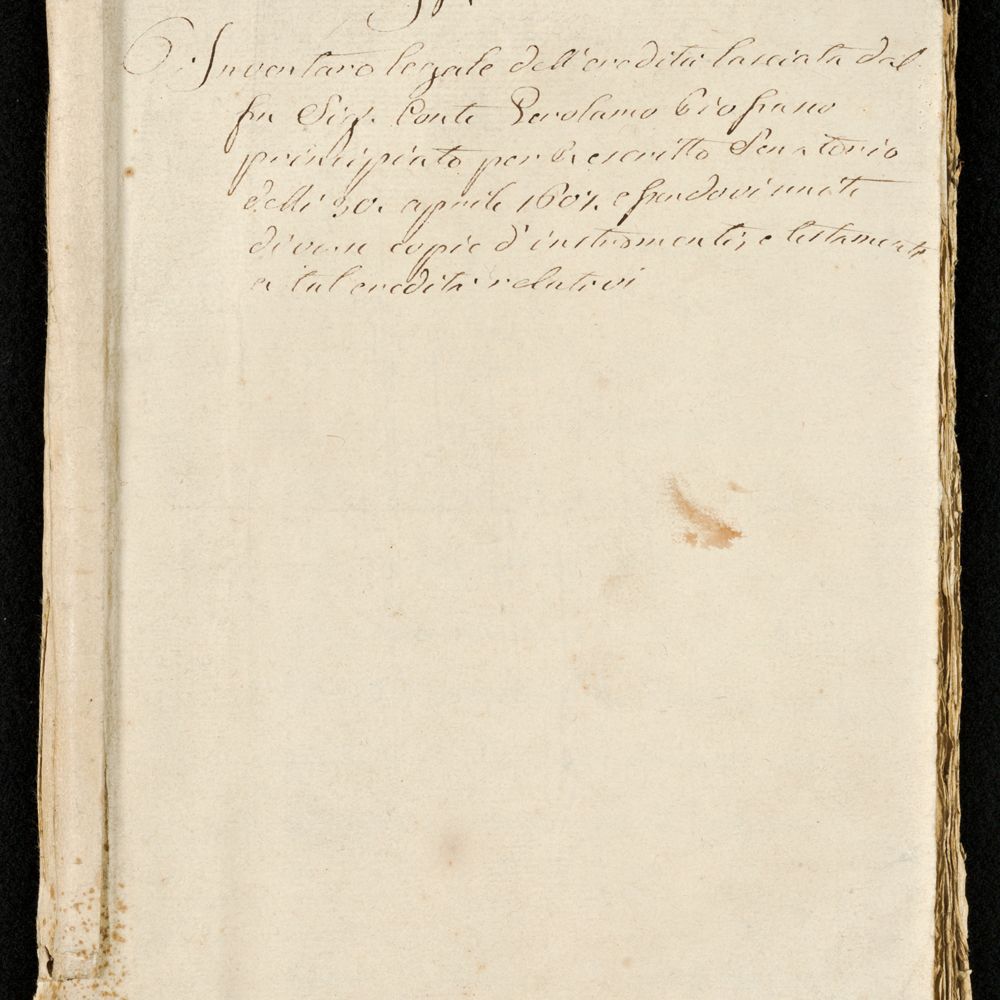 Inventaro legale dell'eredità lasciata dal
fu Sig.r Conte Gerolamo
principiato per Rescritto Senatorio
delli 30. aprile 1601. essendovi unite
diverse copie d'instromenti, e testamenti
a tal eredità relativi